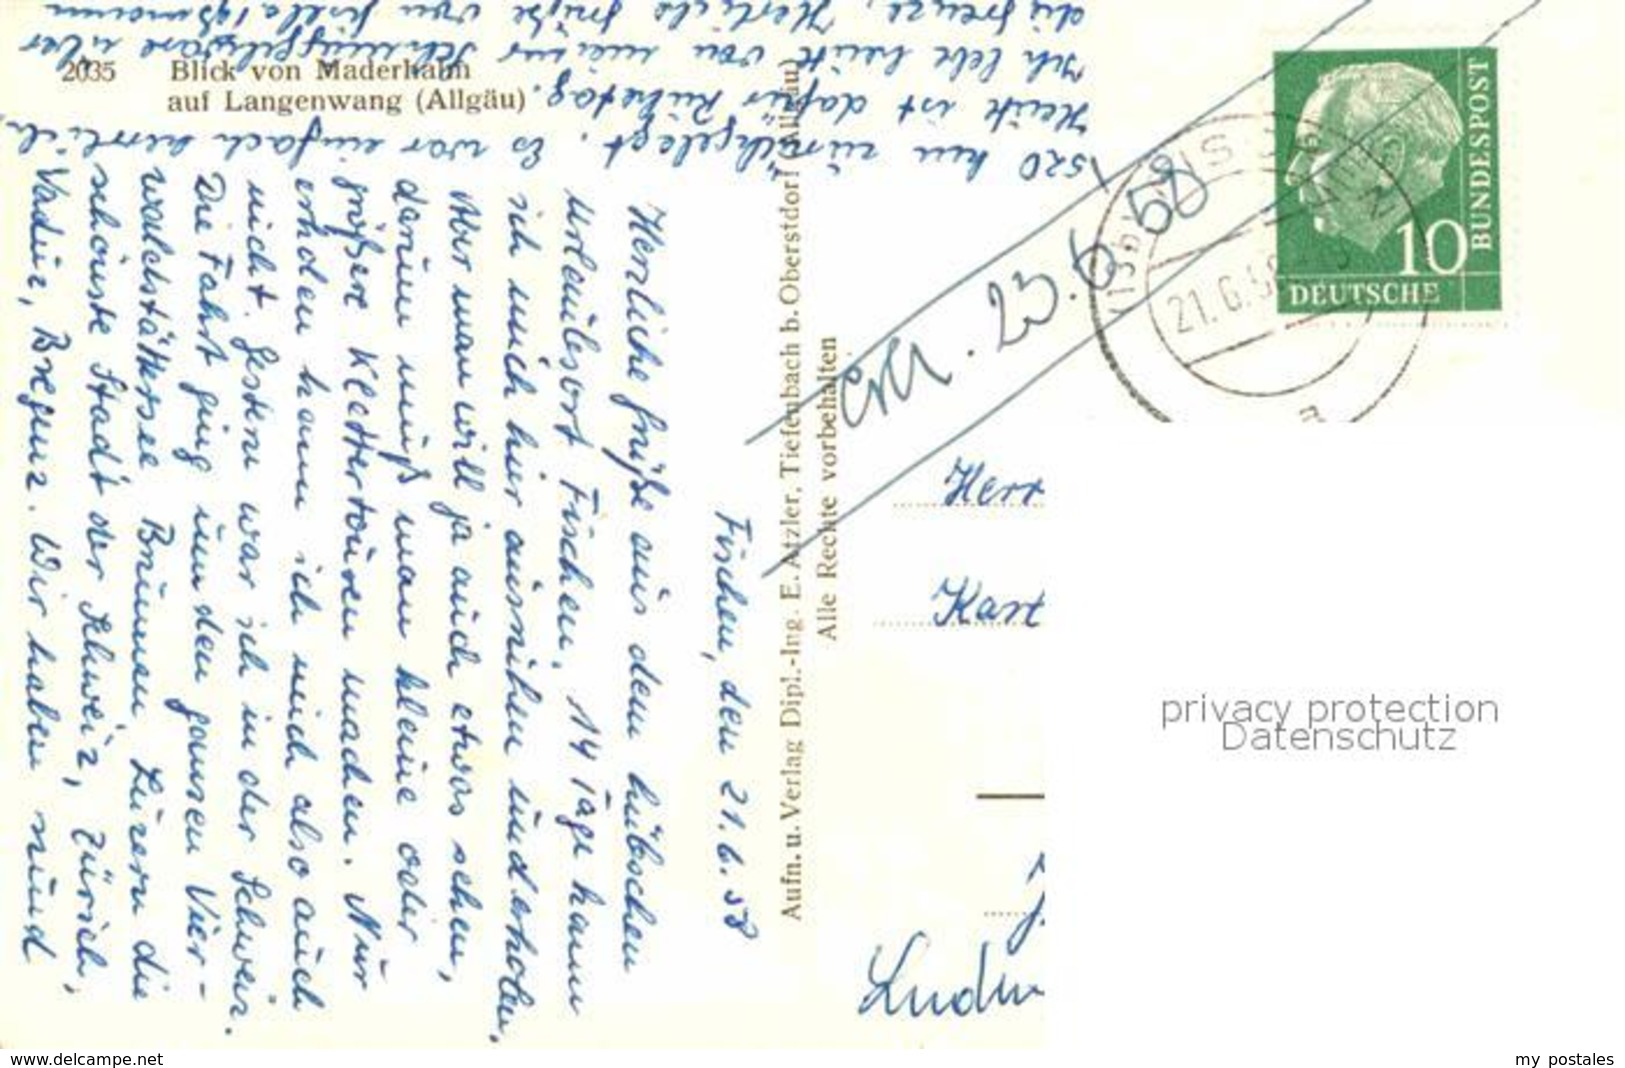 2035 Blick von Maderhalm
auf Langenwang (Allgäu)
Fischen, den 21.6.58
Herzliche Grüße aus dem hübschen
Urlaubsort Fischen. 14 Tage kann
ich mich hier ausruhen und erholen.
Aber man will ja auch etwas sehen,
darum muß man kleine oder
größere Klettertouren machen. Nur
erholen kann ich mich also auch
nicht. Gestern war ich in der Schweiz.
Die Fahrt ging um den ganzen Vier-
waldstättersee Brunnen, Luzern die
schönste Stadt der Schweiz, Zürich,
Vaduz, Bregenz. Wir haben rund
520 km zurückgelegt. Es war einfach herrlich
Heute ist dafür Ruhetag.
Ich lebe heute von meiner
die Grenze. Herzliche Grüße von
Aufn. u. Verlag Dipl.-Ing. E. Atzler, Tiefenbach b. Oberstdorf (Allgäu)
Alle Rechte vorbehalten
23.6.58
21.6.58
10
DEUTSCHE
BUNDESPOST
Herr
Kart
Ludw
privacy protection
Datenschutz
www.delcampe.net
my postales